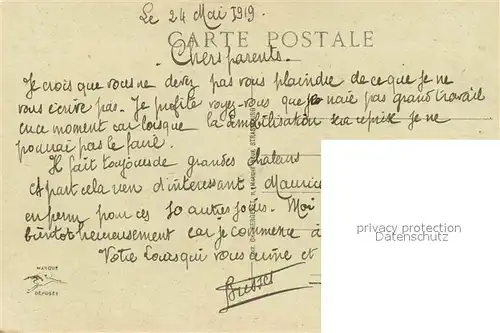 Le 24 Mai 1919.
CARTE POSTALE
Chers parents.
Je crois que vous ne devez pas vous plaindre de ce que je ne
vous écrive pas. Je profite voyez-vous que je naie pas grand travail
en ce moment car lorsque la démobilisation sera reprix je ne
pourrai pas le faire.
Il fait toujours de grandes chaleurs
A part cela rien d'interessant Maurice
enferm pour ces 30 autres jours. Moi
bientot heureusement car je commence à
Votre Louis qui vous aime et
MARQUE
DÉPOSÉE
privacy protection
Datenschutz